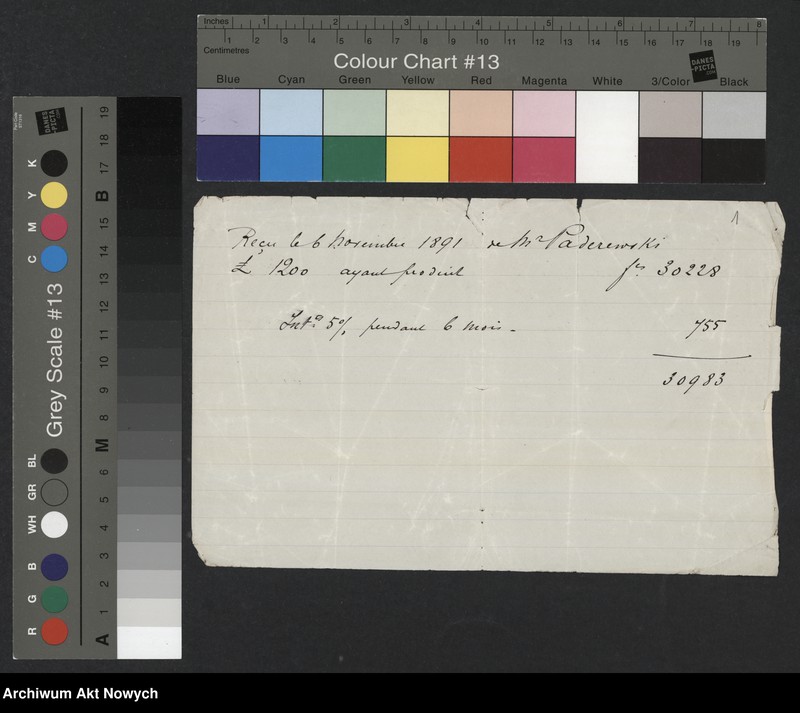 Inches 1 2 3 4 5 6 7 8
1 2 3 4 5 6 7 8 9 10 11 12 13 14 15 16 17 18 19
Centimetres
Colour Chart #13
DANES
-PICTA
.COM
Blue Cyan Green Yellow Red Magenta White 3/Color Black
DANES
-PICTA
.COM
Grey Scale #13
C M Y K
R G B WH GR BL
A 1 2 3 4 5 6 M 8 9 10 11 12 13 14 15 B 17 18 19
1
Reçu le 6 Novembre 1891 de Mr Paderewski
£ 1200 ayant produit frs 30228
Intts 5% pendant 6 mois - 755
30983
Archiwum Akt Nowych